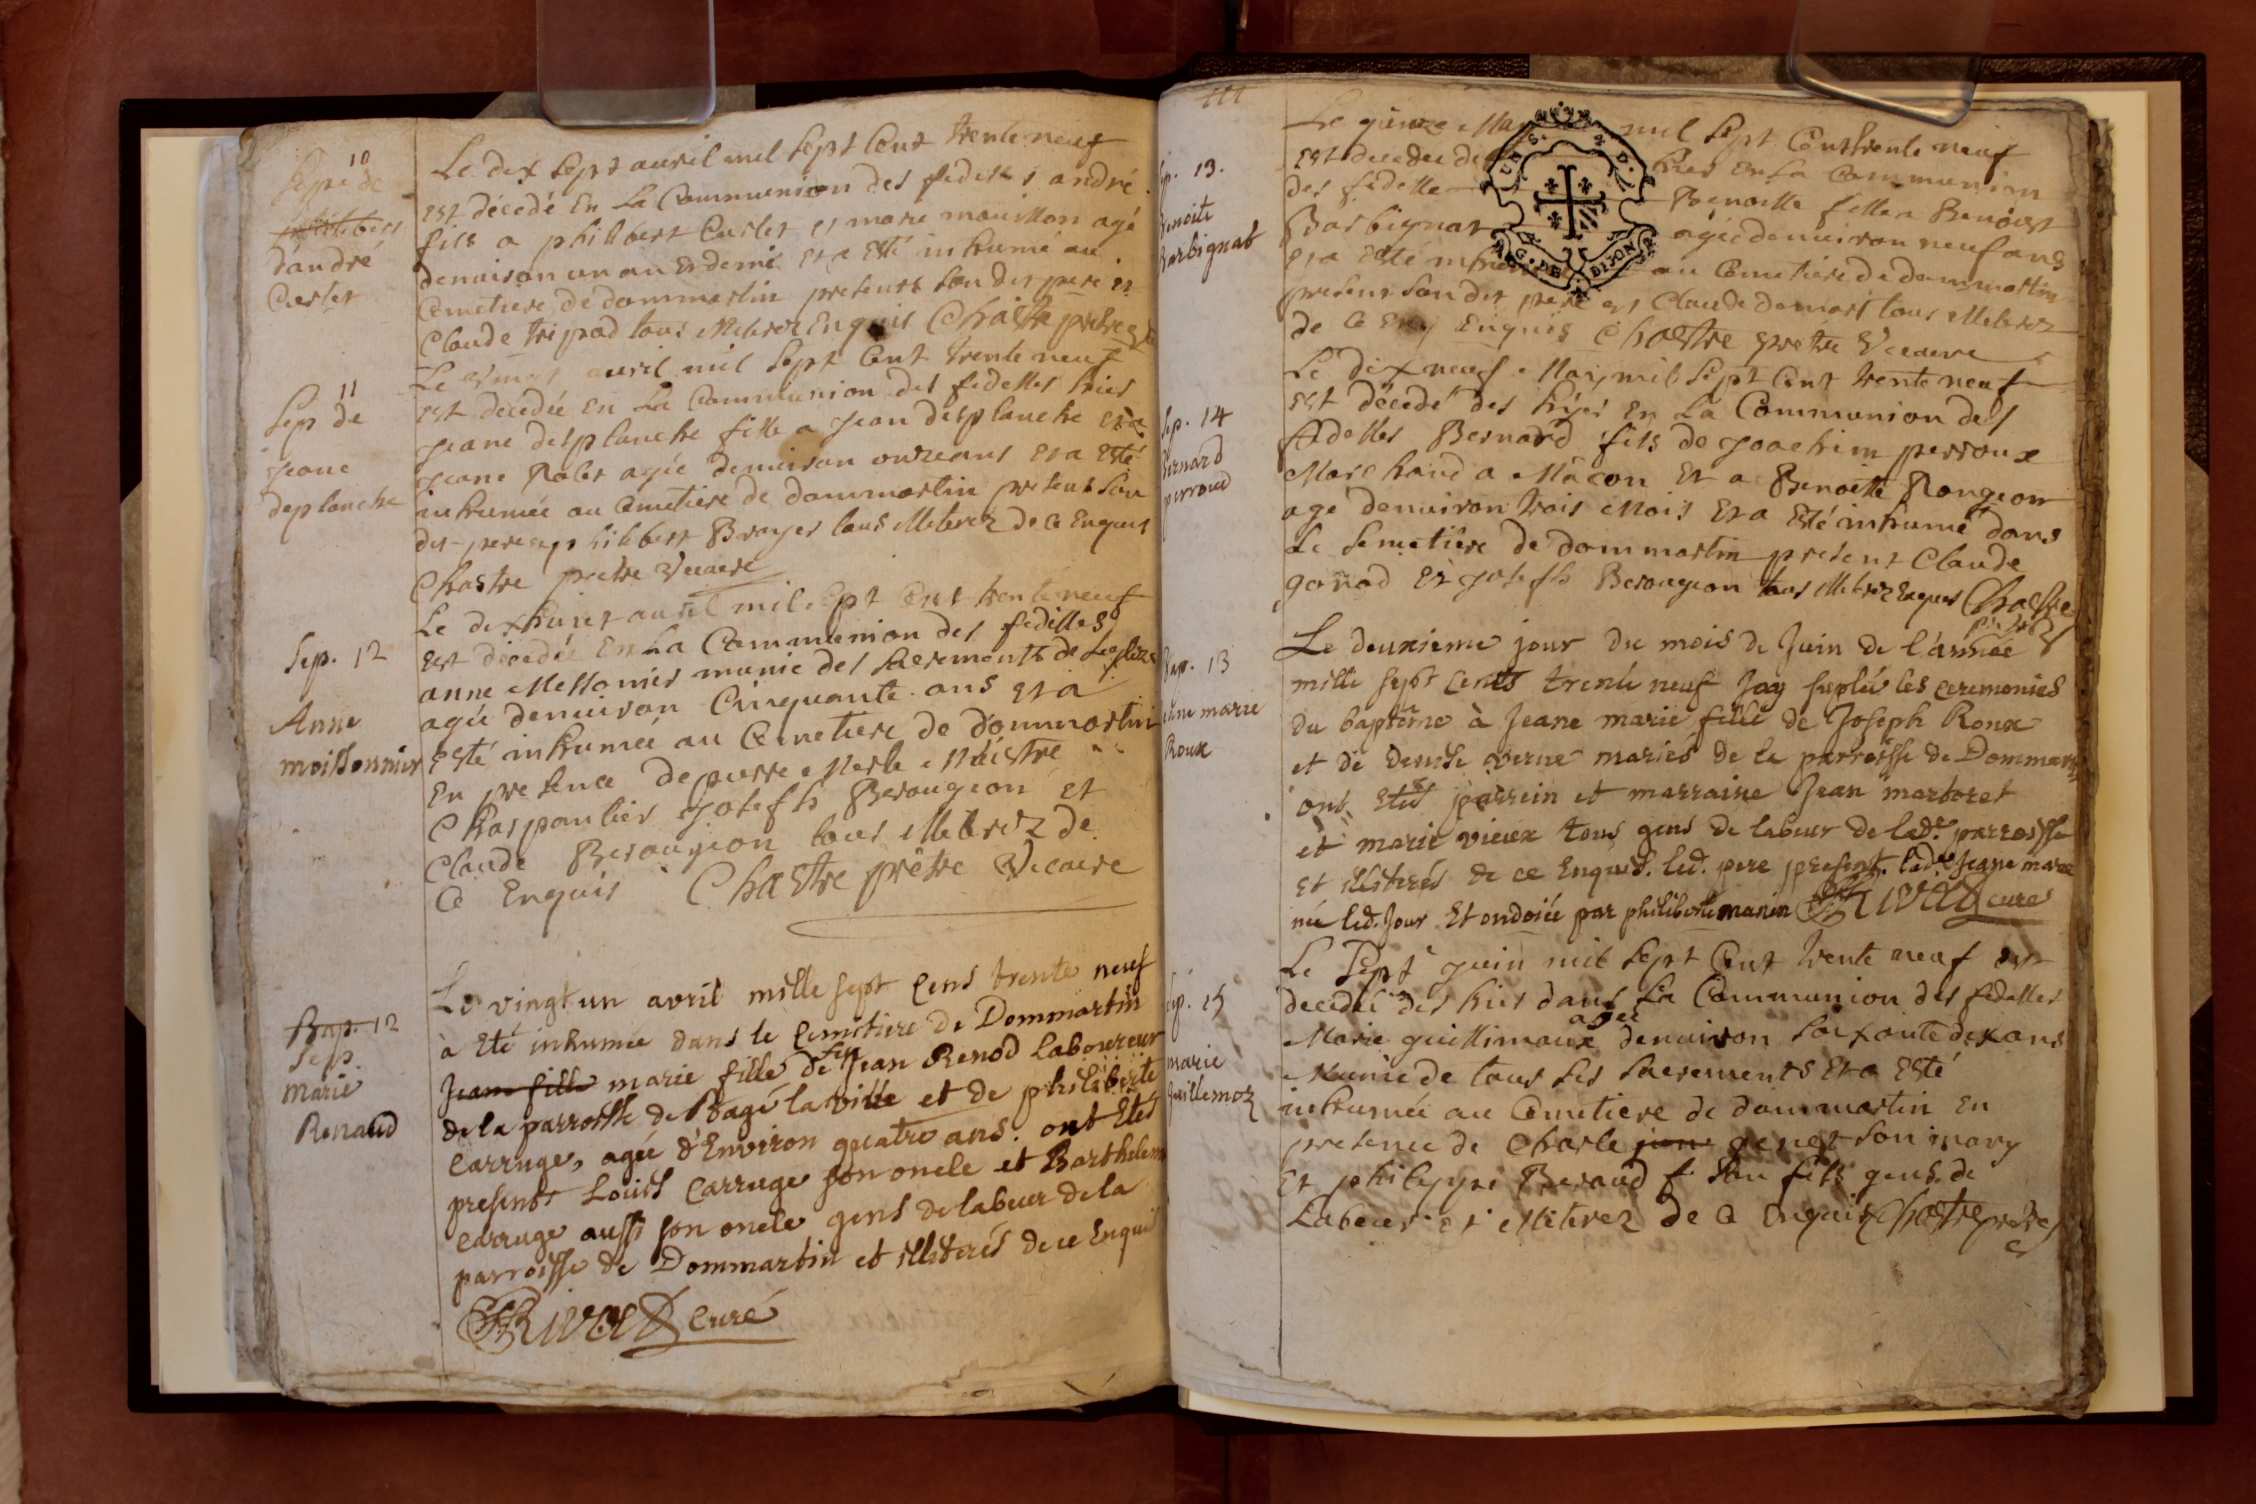 10
Sep. de
philibert
d'andré
Carlet
Le dix sept avril mil sept Cent trente neuf
est décedé En La Communion des fidelles andré
fils a philibert Carlet et marie mouillon agé
denuiron un an Et demi et a esté inhumé au
Cemetiere de dommartin presents son dit pere et
Claude tripod tous illiterez Enquis Chastre prêtre
11
Sep de
jeane
deplanche
Le vingt avril mil sept Cent trente neuf
est decedée En La Communion des fidelles hier
jeane desplanche fille a jean desplanche et a
jeane agée denuiron onze ans et a esté
inhumée au Cimetiere de dommartin presents son
dit pere et philibert Broyer tous illiterez de Ce Enquis
Chastre prêtre Vicaire
Sep. 12
Anne
moissonnier
Le dixhuict avril mil sept Cent trente neuf
est décedée En La Communion des fidelles
anne Messonier munie des sacrements de Leglize
agée denuiron Cinquante ans et a
esté inhumée au Cemetiere de dommartin
En presence de pierre Merle Maistre
Charpantier Joseph Beraugeon et
Claude Beraugeon tous illiterez de
Ce Enquis Chastre prêtre Vicaire
Bap. 12
Sep.
Marie
Renaud
Le vingt un avril mille sept Cens trente neuf
à Eté inhumée dans le Cimetiere de Dommartin
Jean fille marie fille de feu Jean Renod Laboureur
de la parroisse de Bagé la ville et de philiberte
Carruge, agée d'Environ quatre ans. ont Etés
presents Louis Carruge son oncle et Barthelemi
Carruge aussi son oncle gens de labeur de la
parroisse de Dommartin et illiterés de ce Enquis
Rivet curé
111
Sep. 13.
Benoite
Barbignat
Le quinze May mil sept Cent trente neuf
est decedée des hier En La Communion
des fidelles Benoitte fille a Benoist
Barbignat agée denuiron neuf ans
et a esté inhumée au Cemetiere de dommartin
presents son dit pere et Claude tous illiterez
de Ce Enquis Chastre prêtre Vicaire
Sep. 14
Bernard
perroud
Le dix neuf May mil sept Cent trente neuf
est décedé des hier En La Communion des
fidelles Bernard fils de Joachim perroux
Marchand a Mâcon et a Benoitte Rongeon
agé denuiron trois Mois et a esté inhumé dans
Le Semetiere de dommartin present Claude
gonod et joseph Beraugeon tous illiterez Enquis Chastre
Bap. 13
jeane marie
Roux
Le deuxieme jour du mois de Juin de l'année
mille sept cents trente neuf Jay supléé les ceremonies
du baptême à Jeane marie fille de Joseph Roux
et de denise verne mariés de la parroisse de Dommartin
ont Etés parrein et marraine Jean marboret
et marie vieux tous gens de labeur de lad.e parroisse
et illiterés de ce Enquis. led. pere present. lad.e Jeane marie
née led. Jour Et ondoiée par philiberte manin Rivet curé
Sep. 15
marie
guillemoz
Le sept juin mil sept Cent trente neuf est
decedée des hier dans La Communion des fidelles
Marie guillimaux agée denuiron soixante dix ans
Munie de tous les sacrements et a esté
inhumée au Cemetiere de dommartin En
presence de Charle june genet son mary
Et philippe Beraud f son fils gens de
Labeur et illiterez de Ce Enquis Chastre prêtre
DIJON